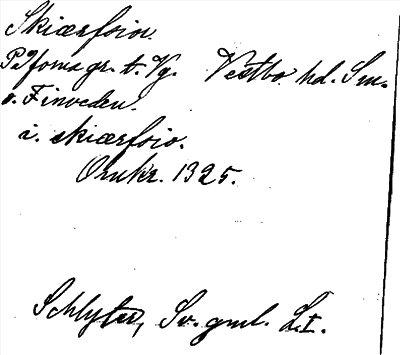 Skiærsioir
På forna gr. t. Vg. Vestbo hd. Sm.
o. Finveden.
i. skiærsior.
Omkr. 1325.
Schlyter, Sv. gml. L. I.